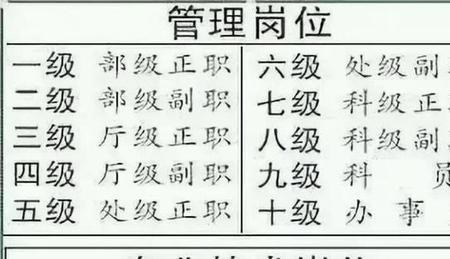 管理岗位
一级 部级正职 六级 处级副
二级 部级副职 七级 科级正
三级 厅级正职 八级 科级副
四级 厅级副职 九级 科 员
五级 处级正职 十级 办事